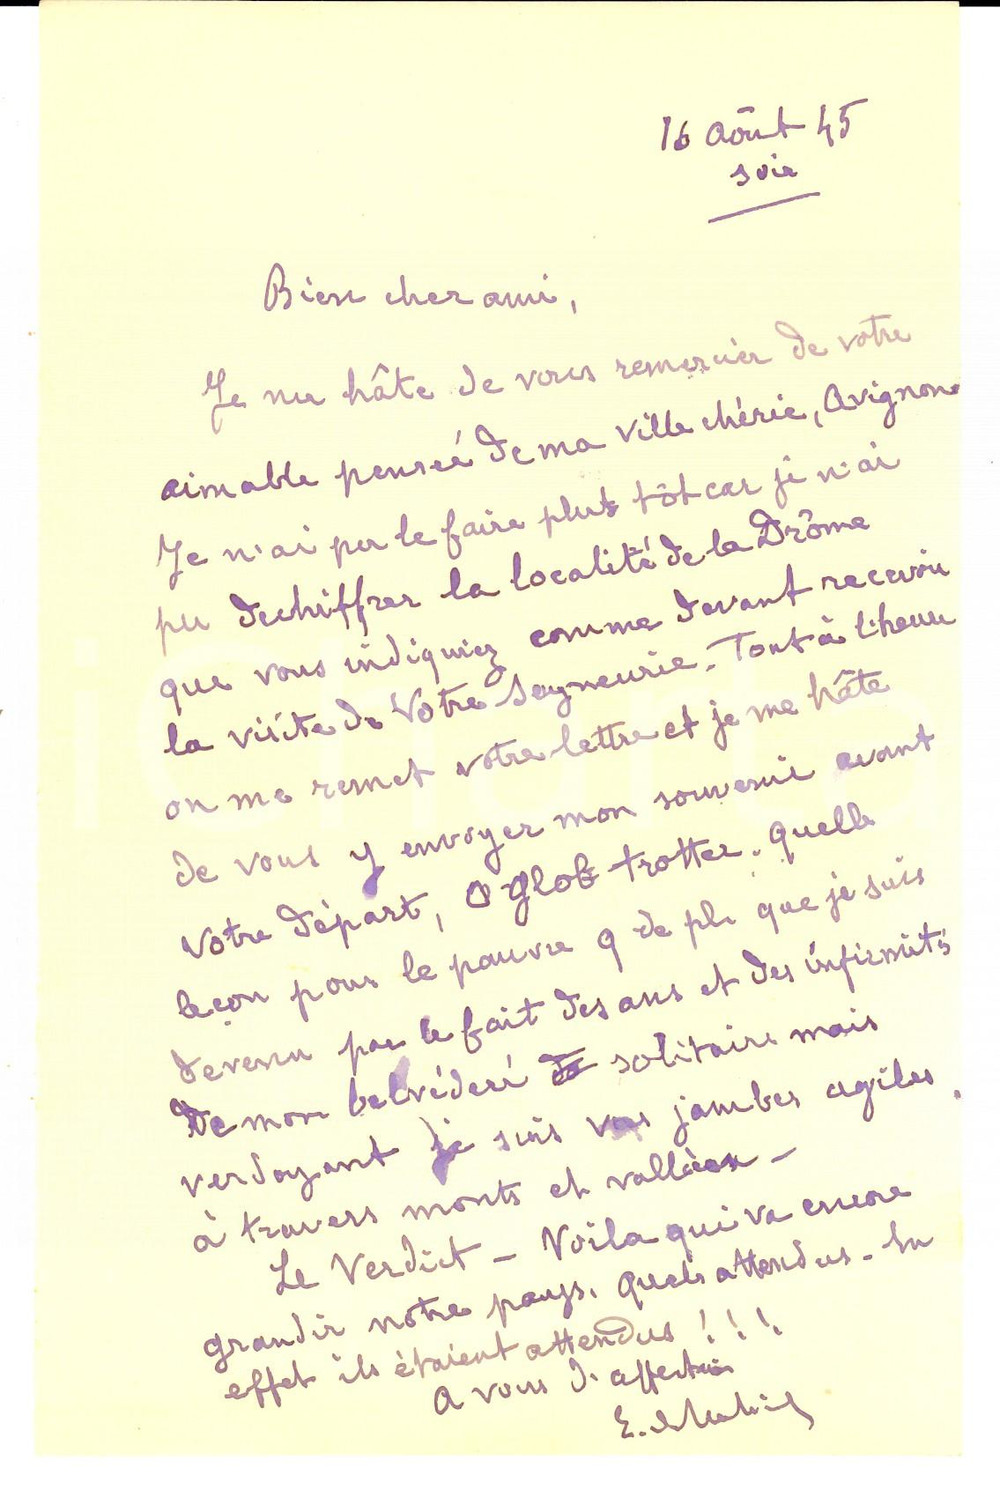 16 août 45
soir
Bien cher ami,
Je me hâte de vous remercier de votre
aimable pensée de ma ville chérie, Avignon.
Je n'ai pu le faire plus tôt car je n'ai
pu dechiffrer la localité de la Drôme
que vous indiquiez comme devant recevoir
la visite de Votre Seigneurie. Tout à l'heure
on me remet votre lettre et je me hâte
de vous y envoyer mon souvenir avant
votre départ, O Glob trotter. quelle
leçon pour le pauvre q de ph que je suis
devenu par le fait des ans et des infirmités
De mon belvéderé solitaire mais
verdoyant je suis vos jambes agiles
à travers monts et vallées –
Le Verdict – Voila qui va encore
grandir notre pays. Quels attendus – En
effet ils étaient attendus !!!
A vous d'affection
E.